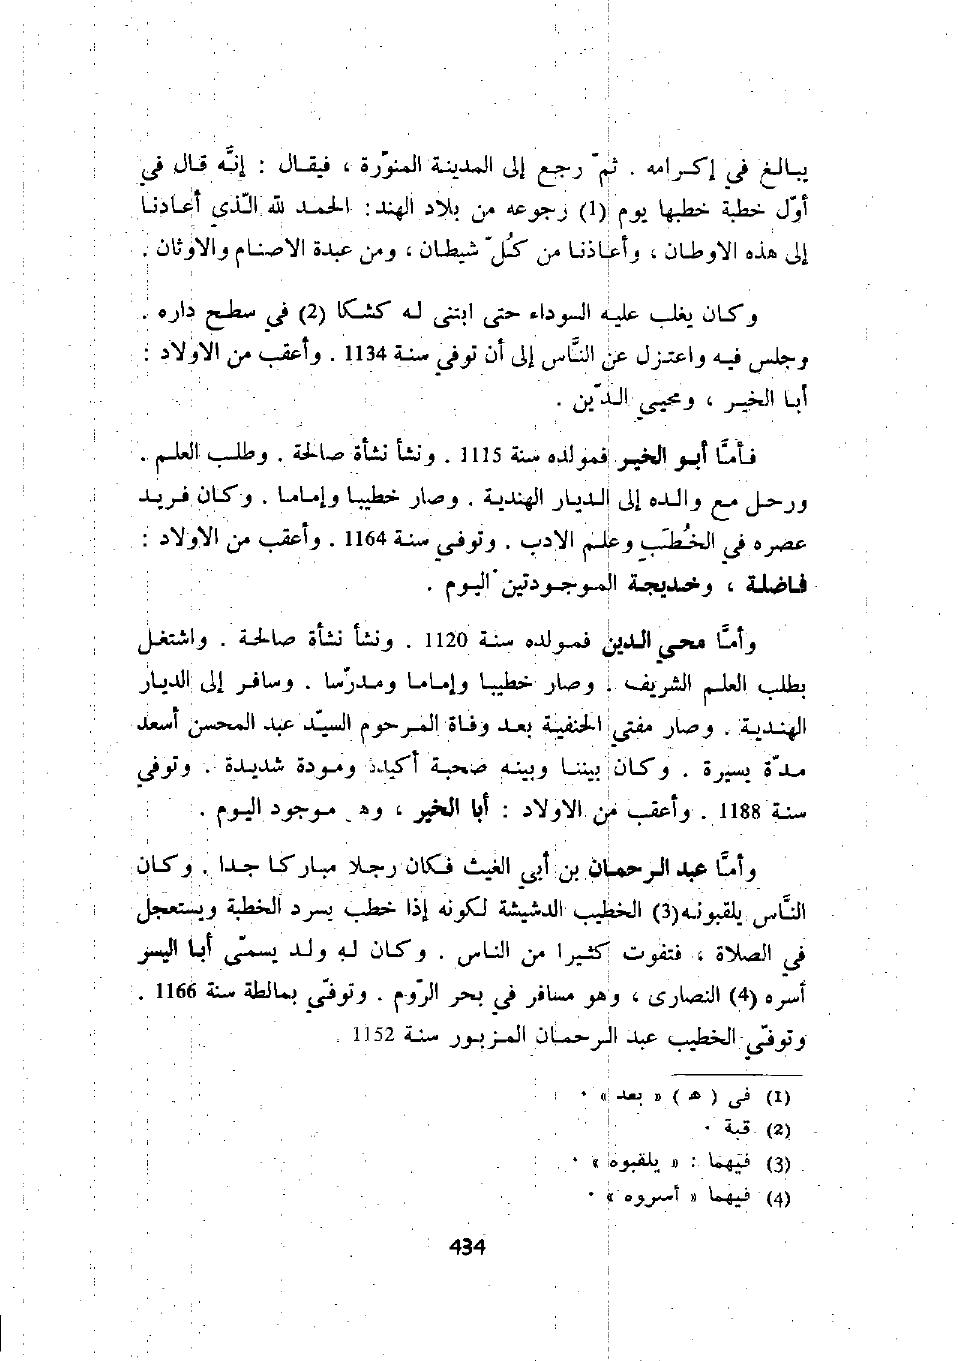 يبالغ في إكرامه . ثمّ رجع إلى المدينة المنوّرة ، فيقال : إنَّه قال في
أوّل خطبة خطبها يوم (1) رجوعه من بلاد الهند: الحمد لله الّذي أعادنا
إلى هذه الاوطان ، وأعاذنا من كُلّ شيطان ، ومن عبدة الاصنام والاوثان .
وكان يغلب عليه السوداء حتى ابتنى له كشكا (2) في سطح داره .
وجلس فيه واعتزل عن النَّاس إلى أن توفي سنة 1134 . وأعقب من الاولاد :
أبا الخير ، ومحيي الدّين .
فأمَّا أبو الخير فمولده سنة 1115 . ونشأ نشأة صالحة . وطلب العلم .
ورحل مع والده إلى الديار الهندية . وصار خطيبا وإماما . وكان فريد
عصره في الخُطَب وعلم الادب . وتوفي سنة 1164 . وأعقب من الاولاد :
فاضلة ، وخديجة الموجودتين اليوم .
وأمَّا محي الدين فمولده سنة 1120 . ونشأ نشأة صالحة . واشتغل
بطلب العلم الشريف . وصار خطيبا وإماما ومدرّسا . وسافر إلى الديار
الهندية . وصار مفتي الحنفية بعد وفاة المرحوم السيّد عبد المحسن أسعد
مدّة يسيرة . وكان بيننا وبينه صحبة أكيدة ومودة شديدة . وتوفي
سنة 1188 . وأعقب من الاولاد : أبا الخير ، وهو موجود اليوم .
وأمَّا عبد الرحمان بن أبي الغيث فكان رجلا مباركا جدا . وكان
النَّاس يلقبونه(3) الخطيب الدشيشة لكونه إذا خطب يسرد الخطبة ويستعجل
في الصلاة ، فتفوت كثيرا من الناس . وكان له ولد يسمّى أبا اليسر
أسره (4) النصارى ، وهو مسافر في بحر الرّوم . وتوفّي بمالطة سنة 1166 .
وتوفّي الخطيب عبد الرحمان المزبور سنة 1152 .
(1) فى ( هـ ) « بعد » .
(2) قبة .
(3) فيهما : « يلقبوه » .
(4) فيهما « أسروه » .
434